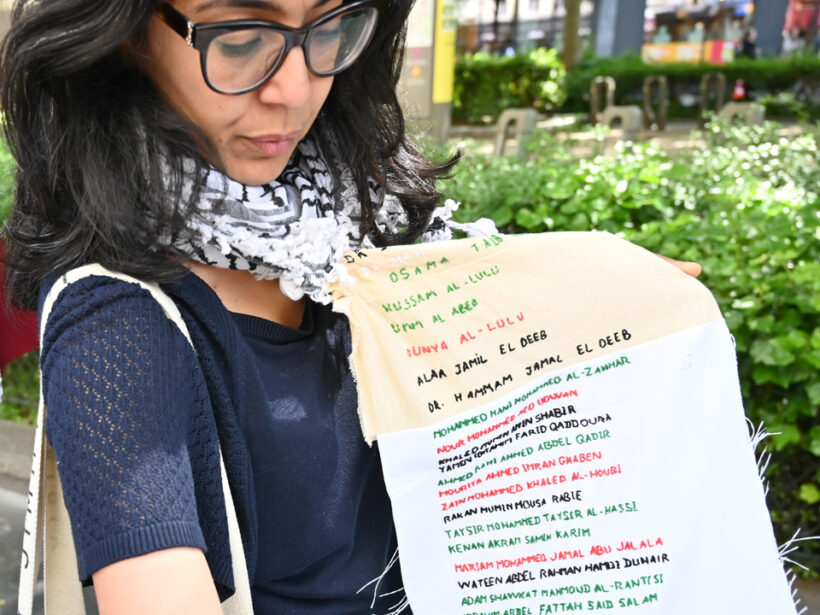 DR
OSAMA TAIB
HUSSAM AL-LULU
AL ABEB
DUNYA AL-LULU
ALAA JAMIL EL DEEB
DR. HAMMAM JAMAL EL DEEB
MOHAMMED HANI MOHAMMED AL-ZAWHAR
NOUR MOHAMMED AED UDWAN
KHALED MUMIN AMIN SHABIR
YAMEN IBRAHIM FARID QADDOURA
AHMED RAMI AHMED ABDEL QADIR
HOURIYA AHMED IMRAN GHABEN
ZAIN MOHAMMED KHALED AL-HOUBI
RAKAN MUMIN MOUSA RABIE
TAYSIR MOHAMMED TAYSIR AL-HASSI
KENAN AKRAM SAMEH KARIM
MARIAM MOHAMMED JAMAL ABU JALALA
WATEEN ABDEL RAHMAN HAMDI DUHAIR
ADAM SHAWKAT MAHMOUD AL-RANTISI
ABDEL FATTAH SAID SALAM